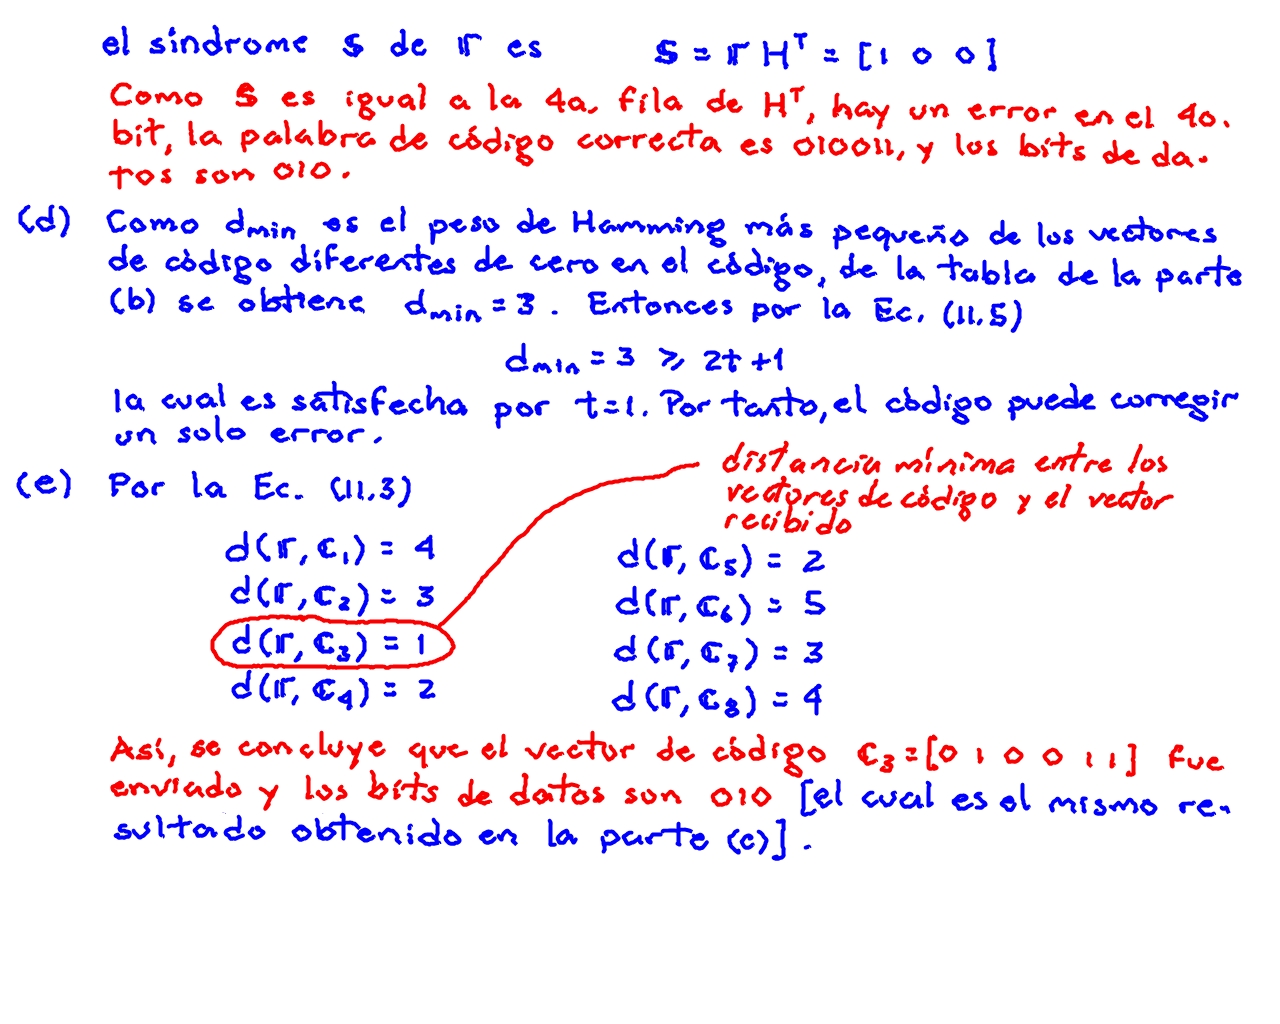 el síndrome S de r es S = r Hᵀ = [1 0 0]
Como S es igual a la 4a. fila de Hᵀ, hay un error en el 4o.
bit, la palabra de código correcta es 010011, y los bits de da-
tos son 010.
(d) Como dmin es el peso de Hamming más pequeño de los vectores
de código diferentes de cero en el código, de la tabla de la parte
(b) se obtiene dmin = 3. Entonces por la Ec. (11.5)
dmin = 3 ⩾ 2t + 1
la cual es satisfecha por t=1. Por tanto, el código puede corregir
un solo error.
distancia mínima entre los
(e) Por la Ec. (11.3)
vectores de código y el vector
recibido
d(r, C₁) = 4 d(r, C₅) = 2
d(r, C₂) = 3 d(r, C₆) = 5
d(r, C₃) = 1 d(r, C₇) = 3
d(r, C₄) = 2 d(r, C₈) = 4
Así, se concluye que el vector de código C₃ = [0 1 0 0 1 1] fue
enviado y los bits de datos son 010 [el cual es el mismo re-
sultado obtenido en la parte (c)].